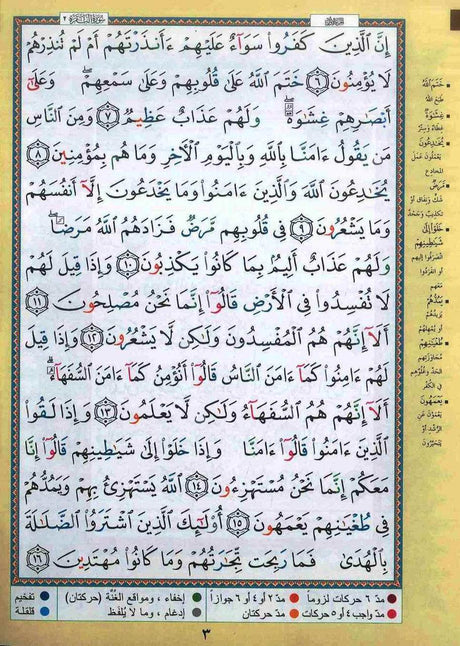 الجزء الأول
سُورَةُ الْبَقَرَةِ ٢
إِنَّ ٱلَّذِينَ كَفَرُوا۟ سَوَآءٌ عَلَيْهِمْ ءَأَنذَرْتَهُمْ أَمْ لَمْ تُنذِرْهُمْ
لَا يُؤْمِنُونَ ﴿٦﴾ خَتَمَ ٱللَّهُ عَلَىٰ قُلُوبِهِمْ وَعَلَىٰ سَمْعِهِمْ ۖ وَعَلَىٰٓ
أَبْصَٰرِهِمْ غِشَٰوَةٌ ۖ وَلَهُمْ عَذَابٌ عَظِيمٌ ﴿٧﴾ وَمِنَ ٱلنَّاسِ
مَن يَقُولُ ءَامَنَّا بِٱللَّهِ وَبِٱلْيَوْمِ ٱلْءَاخِرِ وَمَا هُم بِمُؤْمِنِينَ ﴿٨﴾
يُخَٰدِعُونَ ٱللَّهَ وَٱلَّذِينَ ءَامَنُوا۟ وَمَا يَخْدَعُونَ إِلَّآ أَنفُسَهُمْ
وَمَا يَشْعُرُونَ ﴿٩﴾ فِى قُلُوبِهِم مَّرَضٌ فَزَادَهُمُ ٱللَّهُ مَرَضًا ۖ
وَلَهُمْ عَذَابٌ أَلِيمٌۢ بِمَا كَانُوا۟ يَكْذِبُونَ ﴿١٠﴾ وَإِذَا قِيلَ لَهُمْ
لَا تُفْسِدُوا۟ فِى ٱلْأَرْضِ قَالُوٓا۟ إِنَّمَا نَحْنُ مُصْلِحُونَ ﴿١١﴾
أَلَآ إِنَّهُمْ هُمُ ٱلْمُفْسِدُونَ وَلَٰكِن لَّا يَشْعُرُونَ ﴿١٢﴾ وَإِذَا قِيلَ
لَهُمْ ءَامِنُوا۟ كَمَآ ءَامَنَ ٱلنَّاسُ قَالُوٓا۟ أَنُؤْمِنُ كَمَآ ءَامَنَ ٱلسُّفَهَآءُ ۗ
أَلَآ إِنَّهُمْ هُمُ ٱلسُّفَهَآءُ وَلَٰكِن لَّا يَعْلَمُونَ ﴿١٣﴾ وَإِذَا لَقُوا۟
ٱلَّذِينَ ءَامَنُوا۟ قَالُوٓا۟ ءَامَنَّا وَإِذَا خَلَوْا۟ إِلَىٰ شَيَٰطِينِهِمْ قَالُوٓا۟ إِنَّا
مَعَكُمْ إِنَّمَا نَحْنُ مُسْتَهْزِءُونَ ﴿١٤﴾ ٱللَّهُ يَسْتَهْزِئُ بِهِمْ وَيَمُدُّهُمْ
فِى طُغْيَٰنِهِمْ يَعْمَهُونَ ﴿١٥﴾ أُو۟لَٰٓئِكَ ٱلَّذِينَ ٱشْتَرَوُا۟ ٱلضَّلَٰلَةَ
بِٱلْهُدَىٰ فَمَا رَبِحَت تِّجَٰرَتُهُمْ وَمَا كَانُوا۟ مُهْتَدِينَ ﴿١٦﴾
خَتَمَ اللَّهُ
طَبَعَ اللهُ
غِشَٰوَةٌ
غِطَاءٌ وَسِتْرٌ
يُخَٰدِعُونَ
يَعْمَلُونَ عَمَلَ
المخادع
مَرَضٌ
شَكٌّ وَنِفَاقٌ أَوْ
تكذيبٌ وَجَحْدٌ
خَلَوْا إِلَىٰ
شَيَٰطِينِهِمْ
انْصَرَفُوا إليهم
أو انفردوا
معهم
يَمُدُّهُمْ
يزيدُهُمْ
أو يُمهِلُهُمْ
طُغْيَٰنِهِمْ
مُجَاوَزَتِهِم
الحَدَّ وغُلُوِّهِم
في الكُفْرِ
يَعْمَهُونَ
يَعْمَوْنَ عَن
الرُّشْدِ أَوْ
يَتَحَيَّرُونَ
مدّ ٦ حركات لزوماً مدّ ٢ أو ٤ أو ٦ جوازاً إخفاء، ومواقع الغُنَّة (حركتان) تفخيم
مدّ واجب ٤ أو ٥ حركات مدّ حركتان إدغام، وما لا يُلفَظ قلقلة
٣